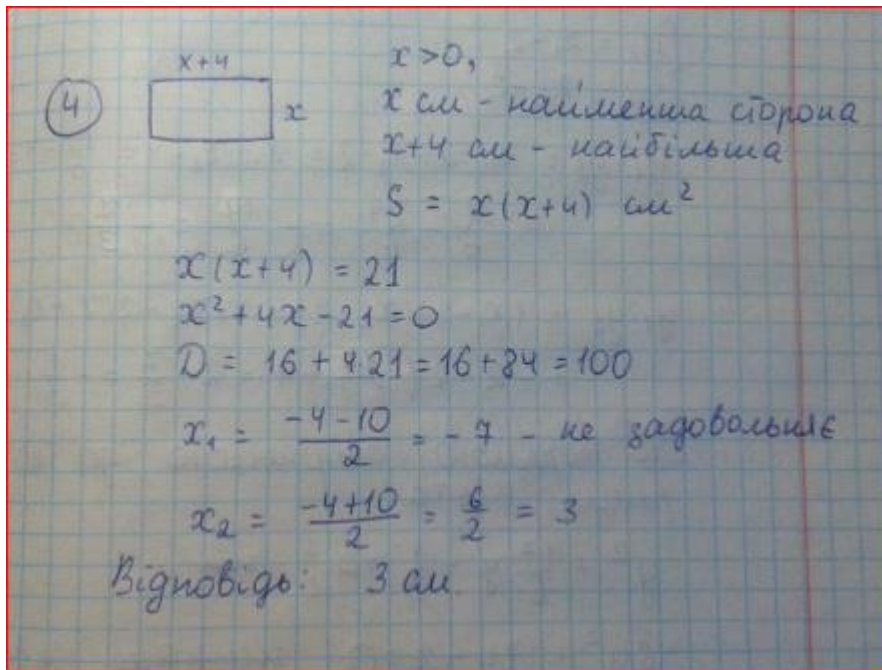 4
x+4
x
x>0,
x см - найменша сторона
x+4 см - найбільша
S = x(x+4) см²
x(x+4) = 21
x²+4x-21=0
D = 16 + 4·21 = 16+84 = 100
x₁ = \frac{-4-10}{2} = -7 - не задовольняє
x₂ = \frac{-4+10}{2} = \frac{6}{2} = 3
Відповідь: 3 см